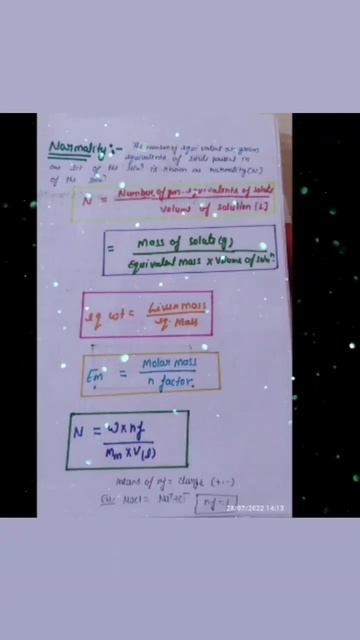 Normality :- The number of equivalent or gram
equivalents of solute present in
one lit of the solun is known as normality (N)
of the solun
N = Number of gm. equivalents of solute
Volume of solution (L)
= Mass of solute (g)
Equivalent mass x Volume of solun
eq wt = Given mass
eq. Mass
Em = Molar mass
n factor.
N = W x nf
Mm x V(l)
means of nf = charge (+,-)
Ex: NaCl = Na+ + Cl- nf = 1
28/07/2022 14:13